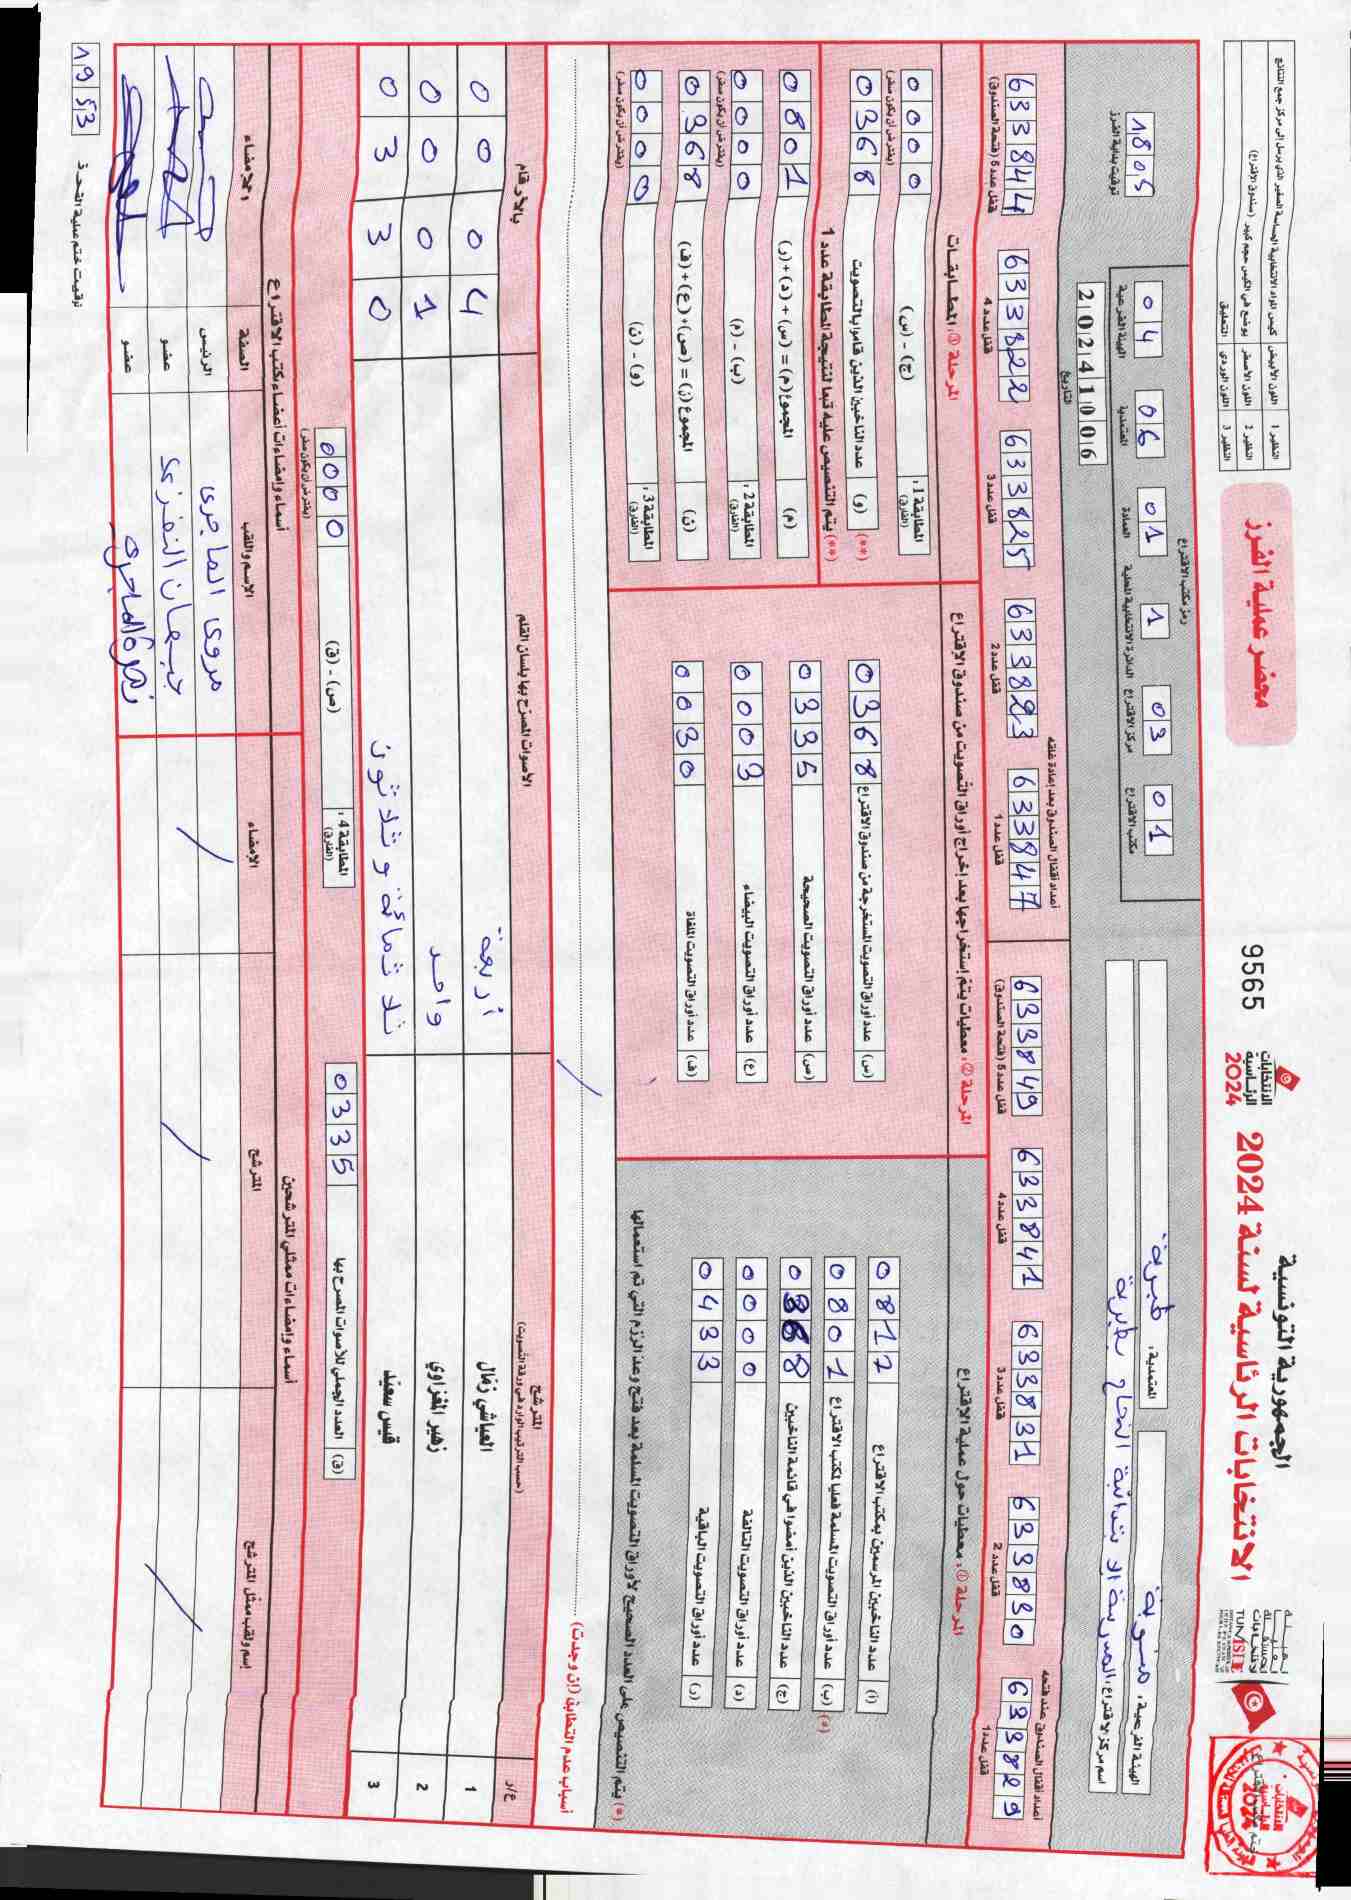 الجمهورية التونسية
الانتخابات الرئاسية لسنة 2024
الانتخابات الرئاسية 2024
9565
محضر عملية الفرز
النظير 1 اللون الأبيض كيس المواد الانتخابية الحساسة الصغير الذي يرسل إلى مركز جمع النتائج
النظير 2 اللون الأصفر يوضع في الكيس حجم كبير (صندوق الاقتراع)
النظير 3 اللون الوردي التعليق
الهيئة الفرعية: منوبة
المعتمدية: طبربة
اسم مركز الاقتراع: المدرسة الابتدائية النجاح طبربة
رمز مكتب الاقتراع
مكتب الاقتراع 01
مركز الاقتراع 03
الدائرة الانتخابية المحلية 1
العمادة 01
المعتمدية 06
الهيئة الفرعية 04
التاريخ 20241006
توقيت بداية الفرز 1805
أعداد أقفال الصندوق عند فتحه
قفل عدد 1 633829
قفل عدد 2 633830
قفل عدد 3 633831
قفل عدد 4 633841
قفل عدد 5 (فتحة الصندوق) 633849
أعداد أقفال الصندوق بعد إعادة غلقه
قفل عدد 1 633847
قفل عدد 2 633823
قفل عدد 3 633825
قفل عدد 4 633822
قفل عدد 5 (فتحة الصندوق) 633844
المرحلة ①: معطيات حول عملية الاقتراع
(أ) عدد الناخبين المرسمين بمكتب الاقتراع 0817
(ب) عدد أوراق التصويت المسلمة فعليا لمكتب الاقتراع 0801 (*)
(ج) عدد الناخبين الذين أمضوا في قائمة الناخبين 0368
(د) عدد أوراق التصويت التالفة 0000
(ر) عدد أوراق التصويت الباقية 0433
(*) يتم التنصيص على العدد الصحيح لأوراق التصويت المسلمة بعد فتح وعد الرزم التي تم استعمالها
المرحلة ②: معطيات يتم إستخراجها بعد إخراج أوراق التصويت من صندوق الاقتراع
(س) عدد أوراق التصويت المستخرجة من صندوق الاقتراع 0368
(ص) عدد أوراق التصويت الصحيحة 0335
(ع) عدد أوراق التصويت البيضاء 0003
(ف) عدد أوراق التصويت الملغاة 0030
المرحلة ③: المطابقات
المطابقة 1: (الفارق) (ج) - (س) 0000 (يفترض أن يكون صفر)
(**) (و) عدد الناخبين الذين قاموا بالتصويت 0368
(**) يتم التنصيص عليه تبعا لنتيجة المطابقة عدد 1
(م) المجموع (م) = (س) + (د) + (ر) 0801
المطابقة 2: (الفارق) (ب) - (م) 0000 (يفترض أن يكون صفر)
(ن) المجموع (ن) = (ص) + (ع) + (ف) 0368
المطابقة 3: (الفارق) (و) - (ن) 0000 (يفترض أن يكون صفر)
أسباب عدم التطابق (إن وجدت)
ع/ر المترشح (حسب الترتيب الوارد في ورقة التصويت) الأصوات المصرّح بها بلسان القلم بالأرقام
1 العياشي زمّال أربعة 0004
2 زهير المغزاوي واحد 0001
3 قيس سعيّد ثلاثمائة وثلاثون 0330
(ق) العدد الجملي للأصوات المصرح بها 0335
المطابقة 4: (الفارق) (ص) - (ق) 0000 (يفترض أن يكون صفر)
أسماء وإمضاءات ممثلي المترشحين
إسم ولقب ممثل المترشح المترشح الإمضاء
أسماء وإمضاءات أعضاء مكتب الاقتراع
الإسم واللقب الصفة الامضاء
مروى الماجري الرئيس
جيهان النفزي عضو
زهرة الماجري عضو
توقيت ختم عملية الفرز 1953